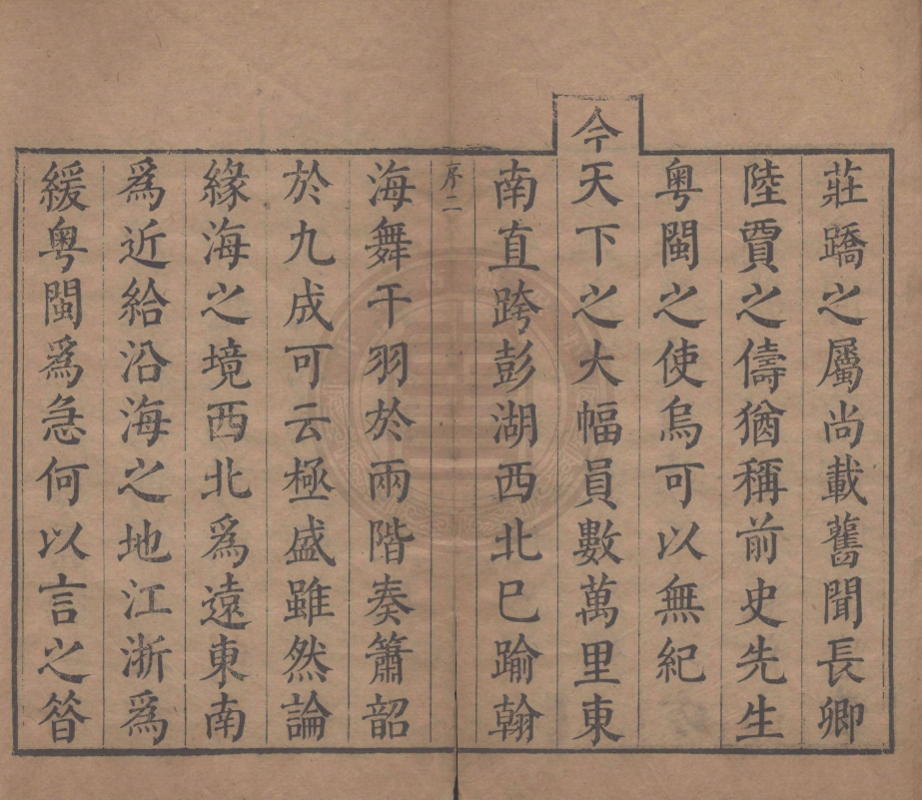 莊蹻之屬尚載舊聞長卿
陸賈之儔猶稱前史先生
粤閩之使烏可以無紀
今天下之大幅員數萬里東
南直跨彭湖西北巳踰翰
序二
海舞干羽於兩階奏簫韶
於九成可云極盛雖然論
緣海之境西北爲遠東南
爲近給沿海之地江浙爲
緩粤閩爲急何以言之昝